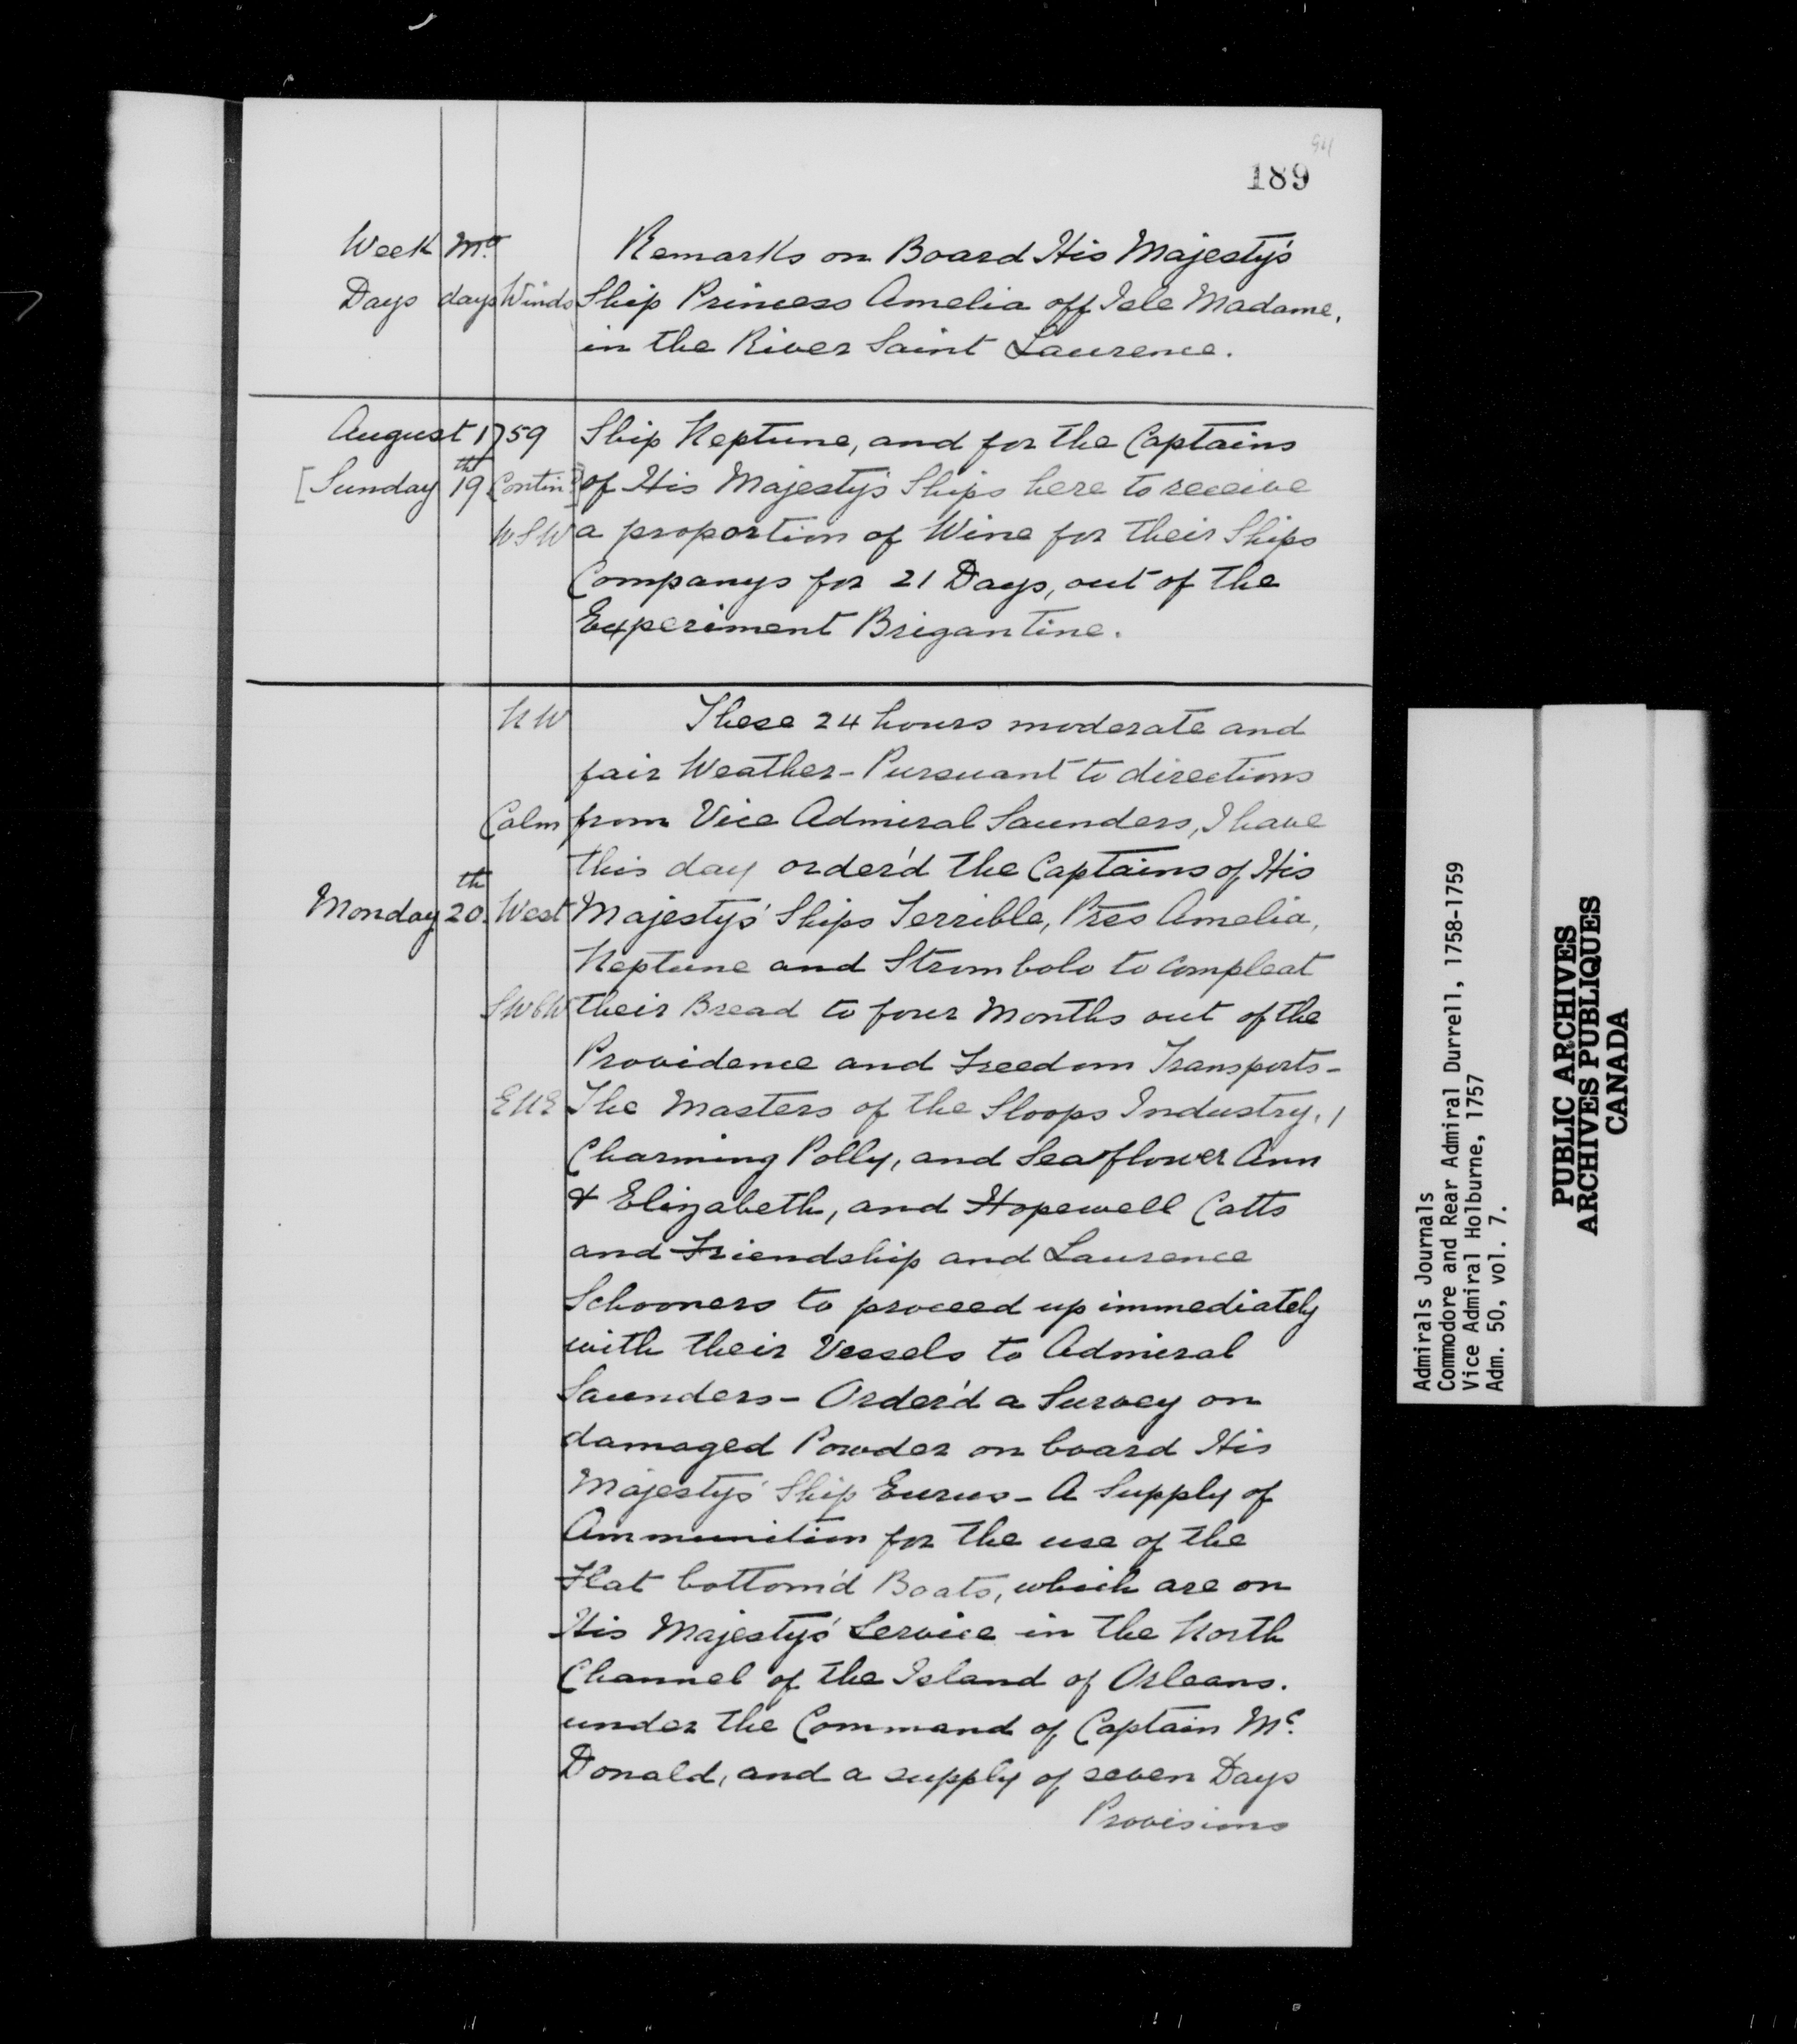 94
189
Week Mo. Remarks on Board His Majesty's
Days days Winds Ship Princess Amelia off Isle Madame,
in the River Saint Laurence.
August 1759 Ship Neptune, and for the Captains
[Sunday 19th Contind] of His Majesty's Ships here to receive
WSW a proportion of Wine for their Ships
Companys for 21 Days, out of the
Experiment Brigantine.
NW These 24 hours moderate and
fair Weather - Pursuant to directions
Calm from Vice Admiral Saunders, I have
this day order'd the Captains of His
Monday 20th. West Majestys' Ships Terrible, Prs Amelia,
Neptune and Strombolo to compleat
SWbW their Bread to four Months out of the
Providence and Freedom Transports -
ENE The Masters of the Sloops Industry,
Charming Polly, and Seaflower Ann
& Elizabeth, and Hopewell Catts
and Friendship and Laurence
Schooners to proceed up immediately
with their Vessels to Admiral
Saunders - Order'd a Survey on
damaged Powder on board His
Majestys' Ship Eurus - A Supply of
Ammunition for the use of the
Flat bottom'd Boats, which are on
His Majestys' Service in the North
Channel of the Island of Orleans.
under the Command of Captain Mc.
Donald, and a supply of seven Days
Provisions
Admirals Journals
Commodore and Rear Admiral Durrell, 1758-1759
Vice Admiral Holburne, 1757
Adm. 50, vol. 7.
PUBLIC ARCHIVES
ARCHIVES PUBLIQUES
CANADA